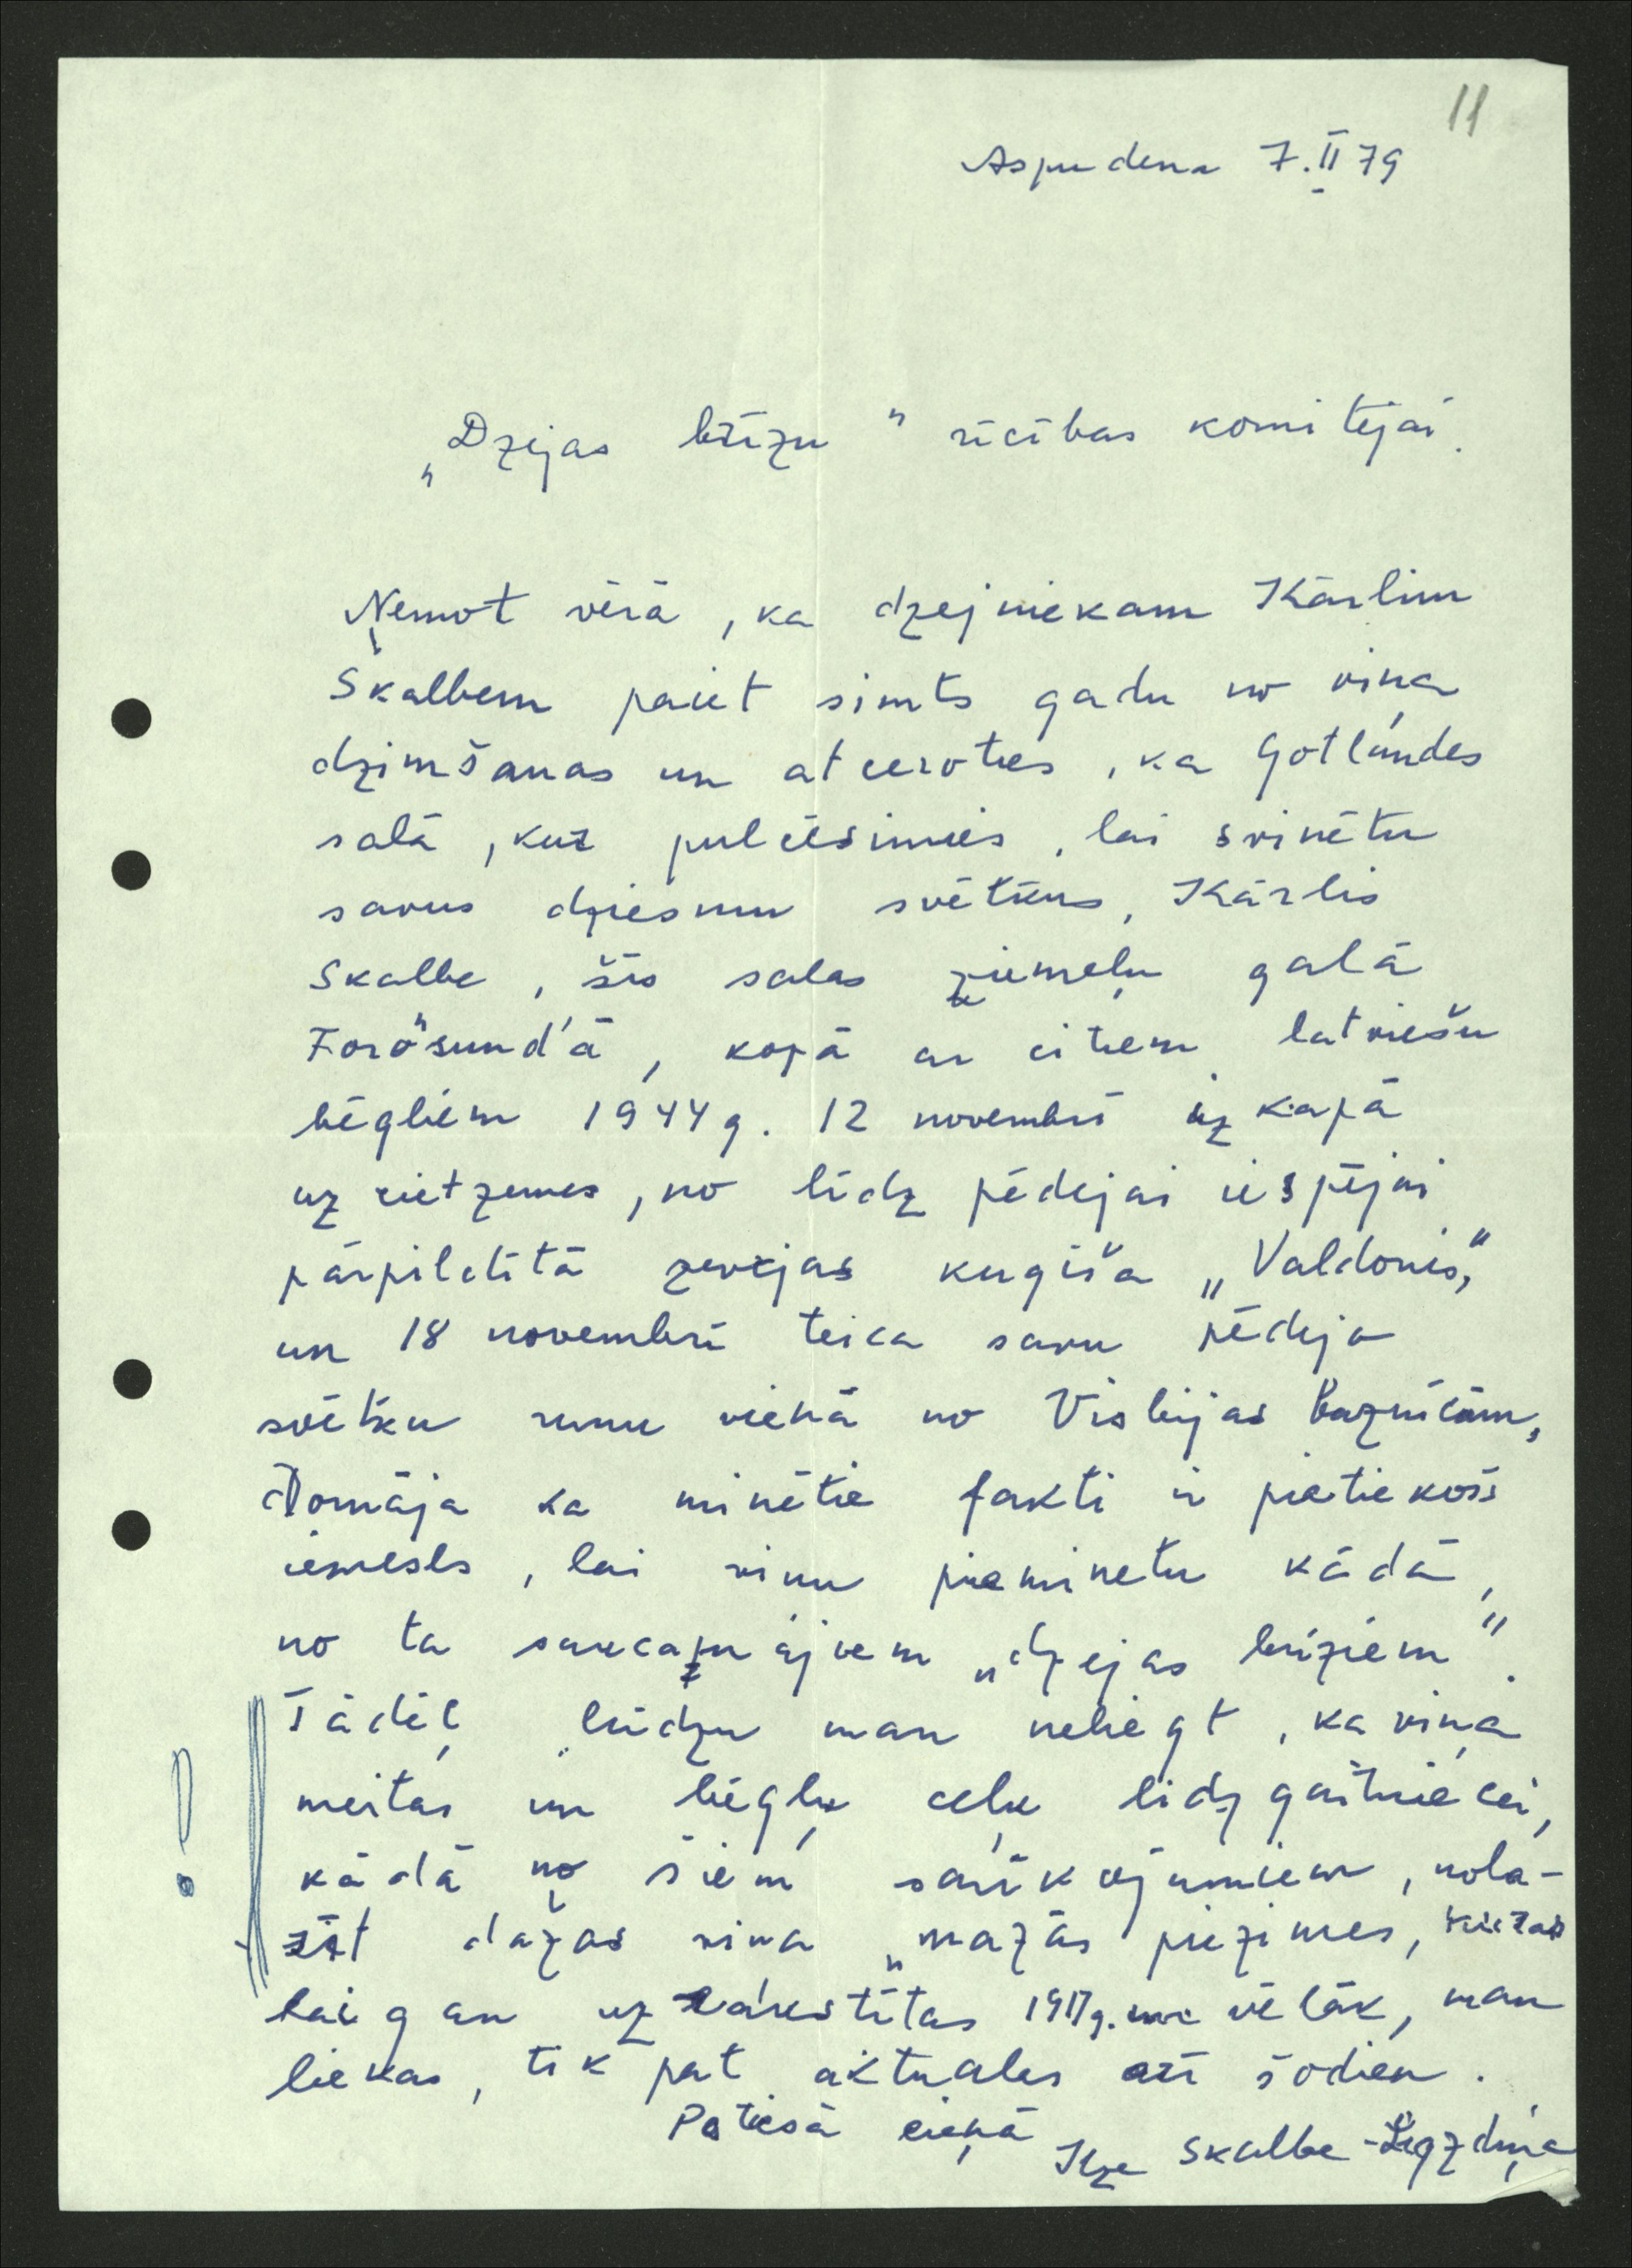 11
Aspudena 7.II 79
„Dzejas brīžu" rīcības komitejai.
Ņemot vērā, ka dzejniekam Kārlim
Skalbem paiet simts gadu no viņa
dzimšanas un atceroties, ka Gotlandes
salā, kur pulcēsimies, lai svinētu
savus dziesmu svētkus, Kārlis
Skalbe, šīs salas ziemeļu galā
Forösund'ā, kopā ar citiem latviešu
bēgļiem 1944 g. 12 novembrī izkāpā
uz cietzemes, no līdz pēdējai iespējai
pārpildītā zvejas kuģīša „Valdonis,"
un 18 novembrī teica savu pēdējo
svētku runu vienā no Visbijas baznīcām,
Domāja ka minētie fakti ir pietiekošs
iemesls, lai viņu pieminetu kādā,
no ta saucamajiem „dzejas brīžiem".
Tādēļ lūdzu man neliegt, ka viņa
meitai un bēgļu ceļu līdzgaitniecei,
kādā no šiem sarīkojumiem, nola-
sīt dažas viņa „mazās piezīmes, kuras
lai gan uzrakstītas 1917 g. un vēlāk, man
liekas, tik pat aktuālas arī šodien.
Patiesā cieņā
Ilze Skalbe-Legzdiņa